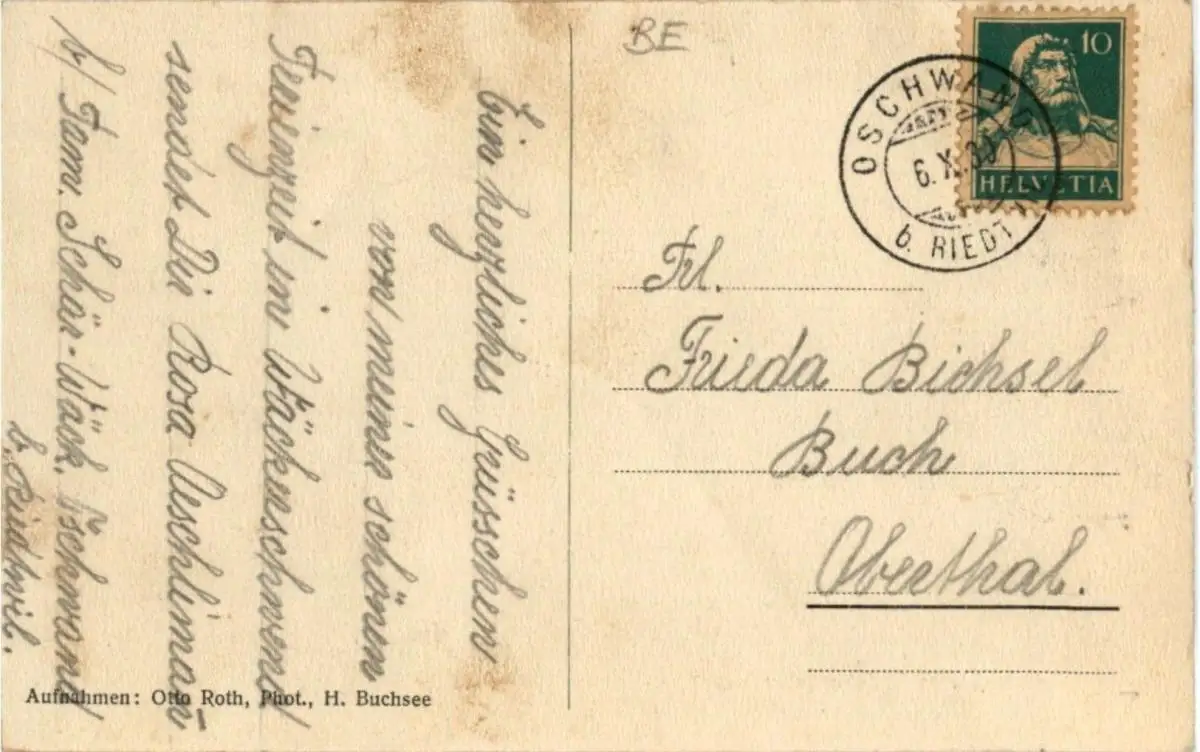 Ein herzliches Grüsschen
von meiner schönen
Ferienzeit im Wäckerschwend
sendet Dir Rosa Aeschliman̄
b/ Fam. Schär-Wäck. Oschwand
b. Riedtwil.
BE
10
HELVETIA
OSCHWAND
6. X. 30
b. RIEDTWIL
Frl.
Frieda Bichsel
Buch
Oberthal.
Aufnahmen: Otto Roth, Phot., H. Buchsee